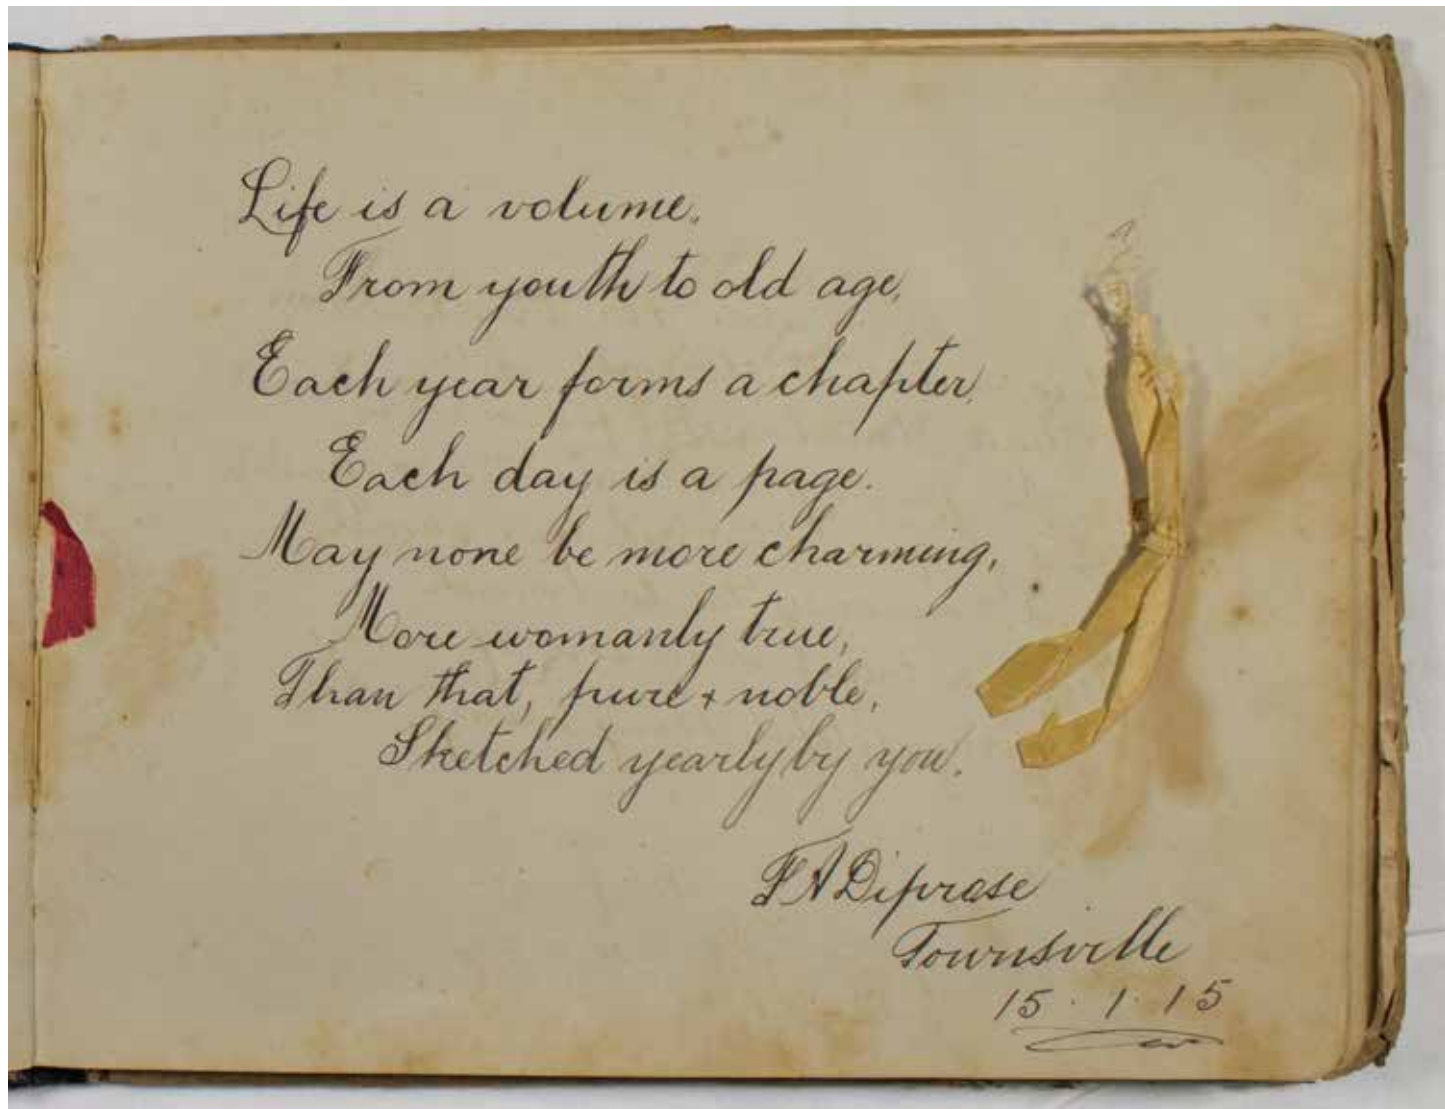 Life is a volume,
From youth to old age,
Each year forms a chapter,
Each day is a page.
May none be more charming,
More womanly true,
Than that, pure & noble,
Sketched yearly by you.
F A Diprose
Townsville
15 . 1 . 15